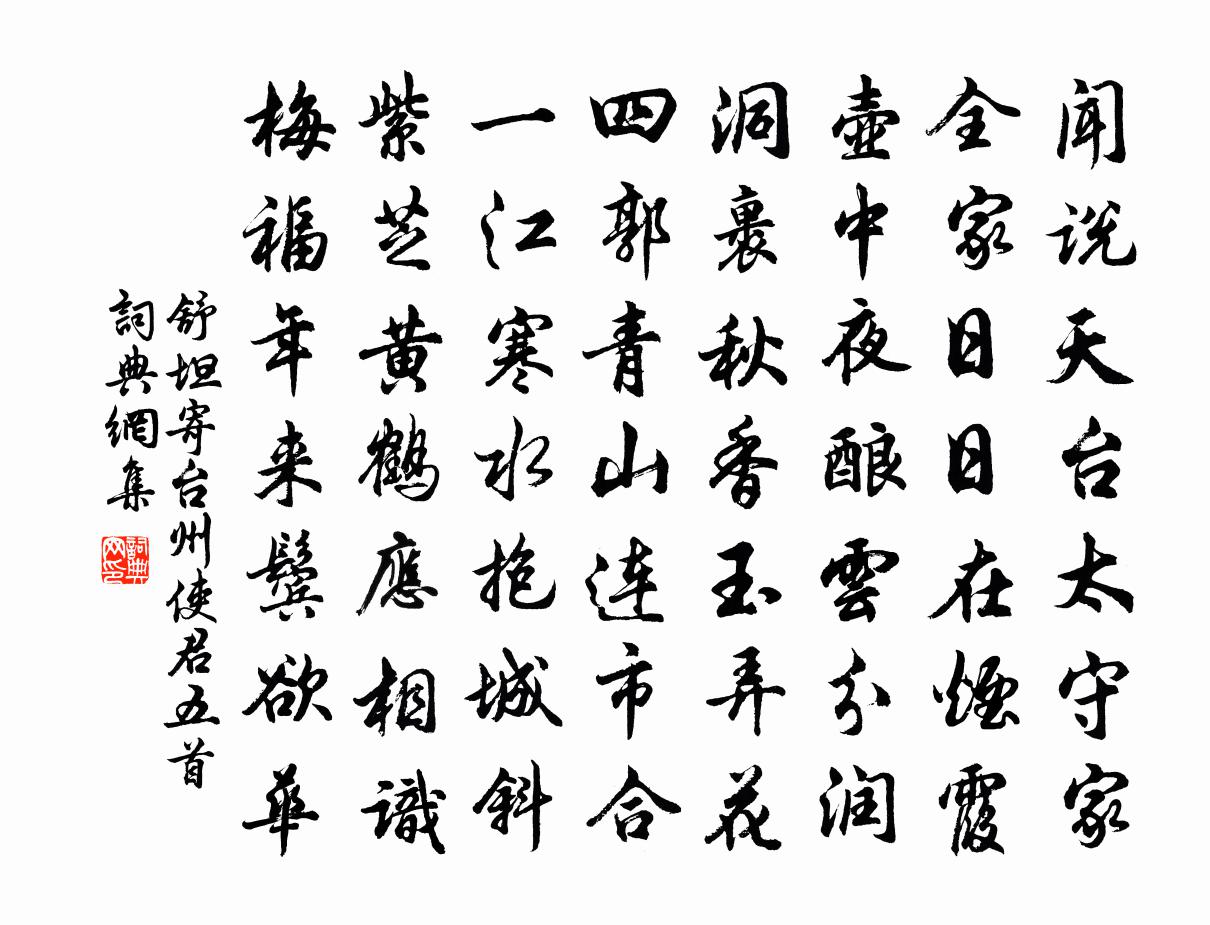 闻说天台太守家
全家日日在煙霞
壺中夜酿雲分润
洞裏秋香玉弄花
四郭青山连市合
一江寒水抱城斜
紫芝黄鶴應相識
梅福年来鬓欲華
舒坦寄台州使君五首
詞典網集
詞典網印